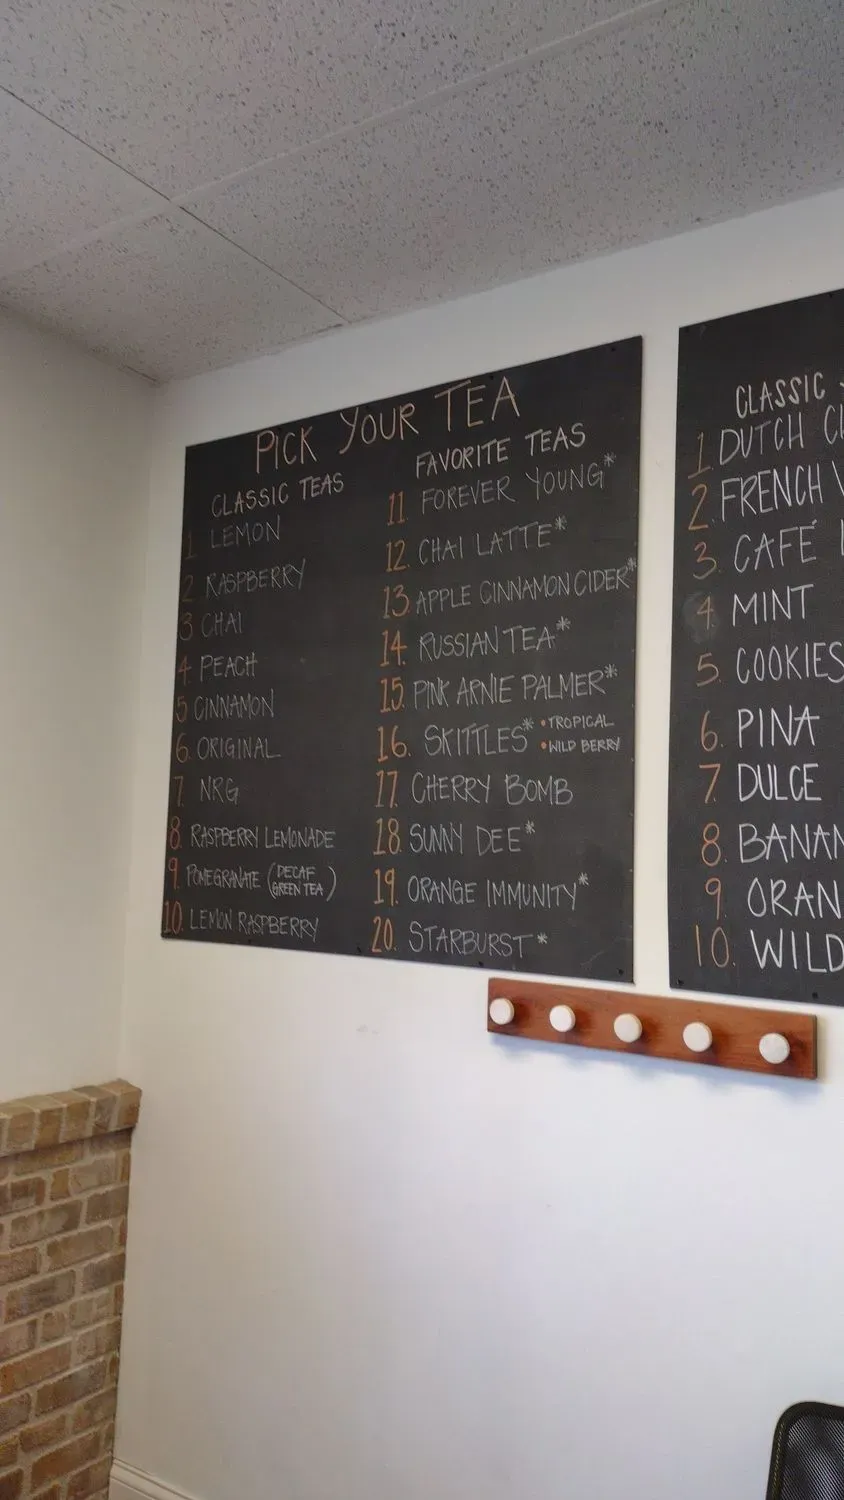 PICK YOUR TEA
CLASSIC TEAS
1 LEMON
2 RASPBERRY
3 CHAI
4 PEACH
5 CINNAMON
6. ORIGINAL
7. NRG
8. RASPBERRY LEMONADE
9. POMEGRANATE (DECAF
GREEN TEA)
10. LEMON RASPBERRY
FAVORITE TEAS
11. FOREVER YOUNG*
12. CHAI LATTE*
13. APPLE CINNAMON CIDER*
14. RUSSIAN TEA*
15. PINK ARNIE PALMER*
16. SKITTLES* •TROPICAL
•WILD BERRY
17. CHERRY BOMB
18. SUNNY DEE*
19. ORANGE IMMUNITY*
20. STARBURST*
CLASSIC
1. DUTCH
2. FRENCH
3. CAFÉ
4. MINT
5. COOKIES
6. PINA
7. DULCE
8. BANAN
9. ORAN
10. WILD